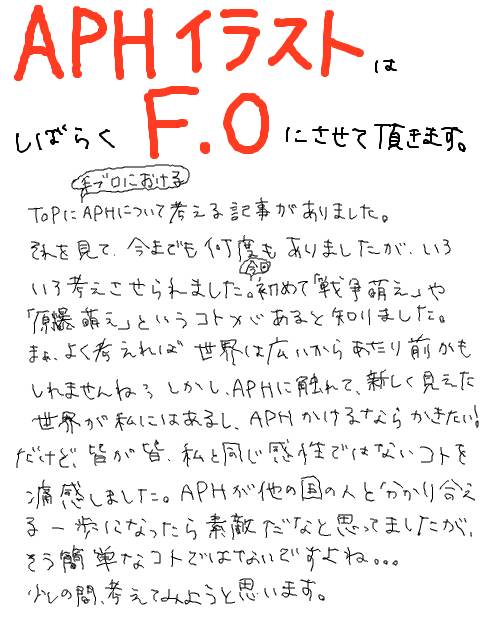 APHイラストは
しばらくF.Oにさせて頂きます。
手ブロにおける
TOPにAPHについて考える記事がありました。
それを見て、今までも何度もありましたが、いろ
いろ考えさせられました。今回初めて「戦争萌え」や
「原爆萌え」というコトメがあると知りました。
まぁ、よく考えれば世界は広いからあたり前かも
しれませんねぅ しかし、APHに触れて、新しく見えた
世界が私にはあるし、APHかけるならかきたい!
だけど、皆が皆、私と同じ感性ではないコトを
痛感しました。APHが他の国の人と分かり合え
る一歩になったら素敵だなと思ってましたが、
そう簡単なコトではないですよね...
少しの間、考えてみようと思います。